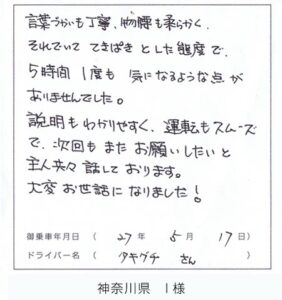 言葉づかいも丁寧、物腰も柔らかく、
それでいて てきぱきとした態度で、
5時間 1度も 気になるような点が
ありませんでした。
説明もわかりやすく、運転もスムーズ
で、次回も また お願いしたいと
主人共々 話しております。
大変お世話になりました!
御乗車年月日 ( 27年 5月 17日)
ドライバー名 ( タキグチ さん )
神奈川県 I様